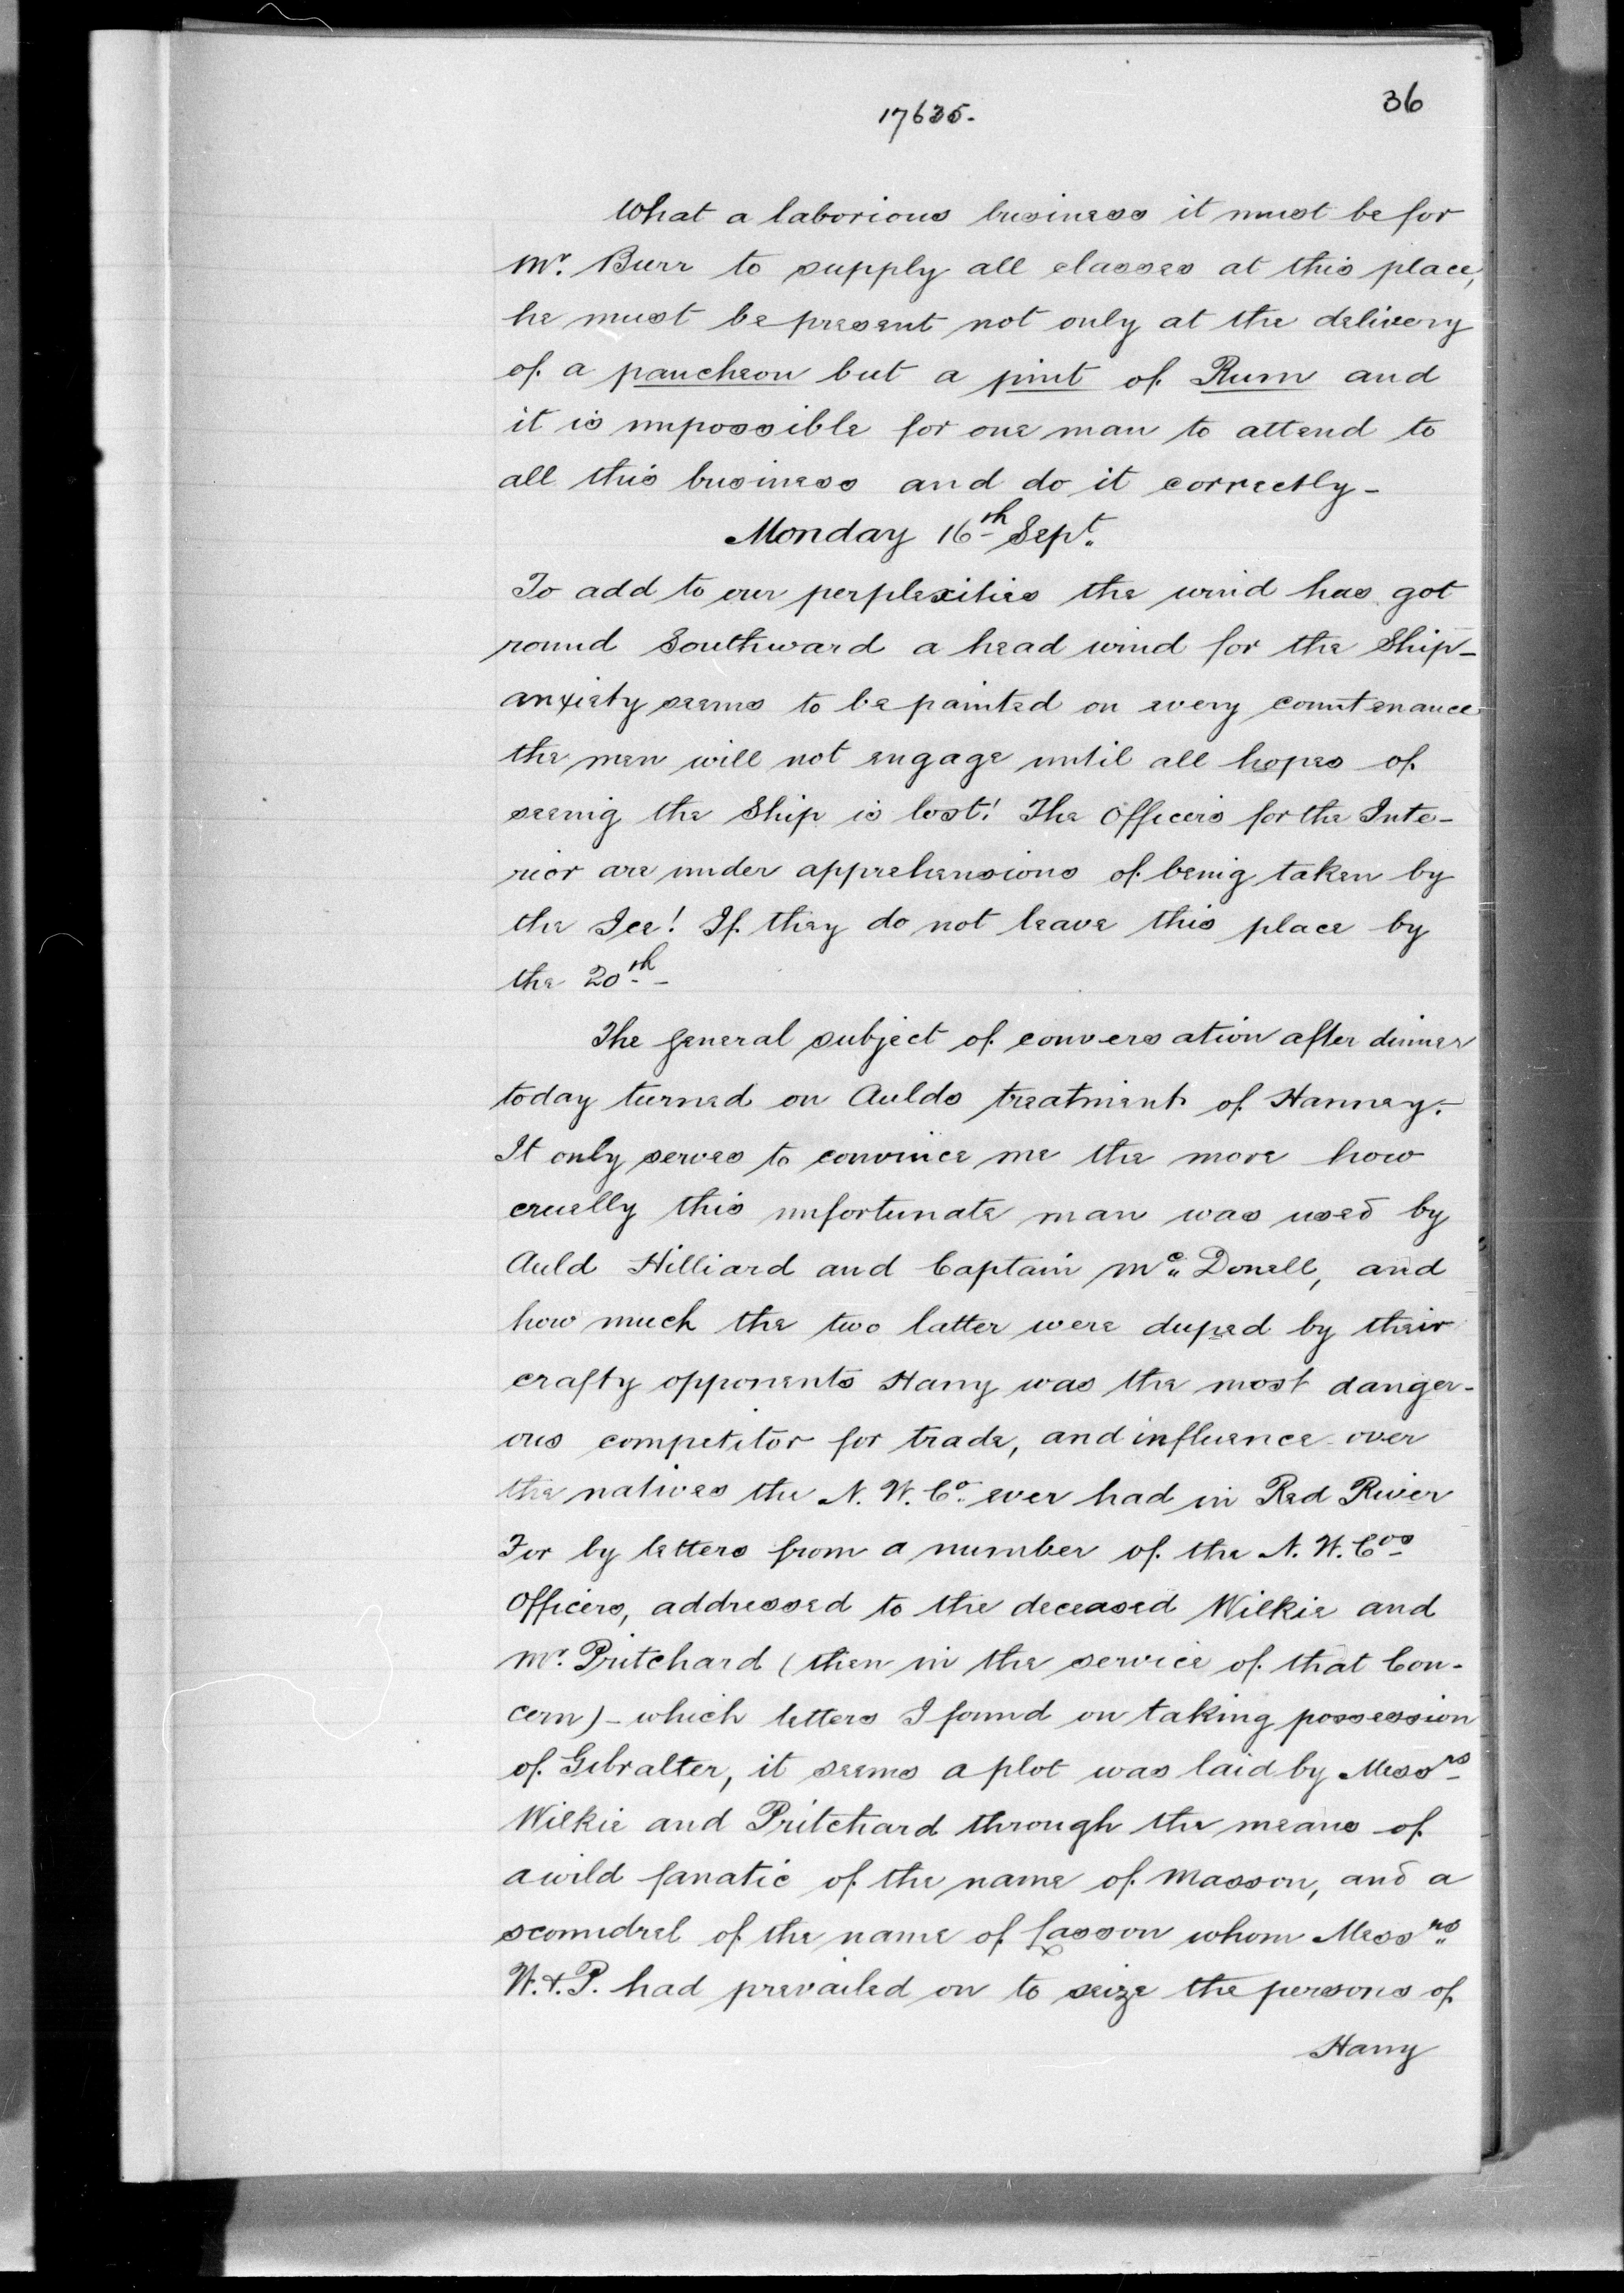 36
17635.
What a laborious business it must be for
Mr. Burr to supply all classes at this place,
he must be present not only at the delivery
of a pancheon but a pint of Rum and
it is impossible for one man to attend to
all this business and do it correctly -
Monday 16th Sept.
To add to our perplexities the wind has got
round Southward a head wind for the Ship -
anxiety seems to be painted on every countenance
the men will not engage until all hopes of
seeing the Ship is lost! The Officers for the Inte-
rior are under apprehensions of being taken by
the Ice! If they do not leave this place by
the 20th -
The general subject of conversation after dinner
today turned on Aulds treatment of Hanney.
It only serves to convince me the more how
cruelly this unfortunate man was used by
Auld Hilliard and Captain Mc Donell, and
how much the two latter were duped by their
crafty opponents Hany was the most danger-
ous competitor for trade, and influence over
the natives the N. W. Co. ever had in Red River
For by letters from a number of the N. W. Cos
Officers, addressed to the deceased Wilkie and
Mr. Pritchard (then in the service of that Con-
cern) - which letters I found on taking possession
of Gibralter, it seems a plot was laid by Messrs
Wilkie and Pritchard through the means of
a wild fanatic of the name of Masson, and a
scoundrel of the name of Lasson whom Messrs
W. & P. had prevailed on to seize the persons of
Hany